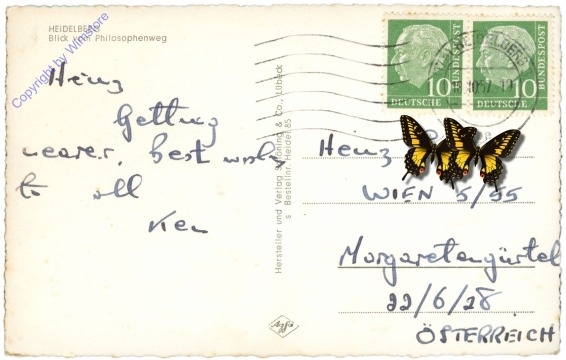 HEIDELBERG
Blick vom Philosophenweg
Copyright by Winstore
Heinz
Getting
nearer, best wishes
to all
Ken
Hersteller und Verlag Schöning & Co., Lübeck
Bestellnr. Heidel 85
10
DEUTSCHE
BUNDESPOST
10
DEUTSCHE
BUNDESPOST
HEIDELBERG
Heinz
WIEN 5/55
Margaretengürtel
22/6/28
ÖSTERREICH
Agfa